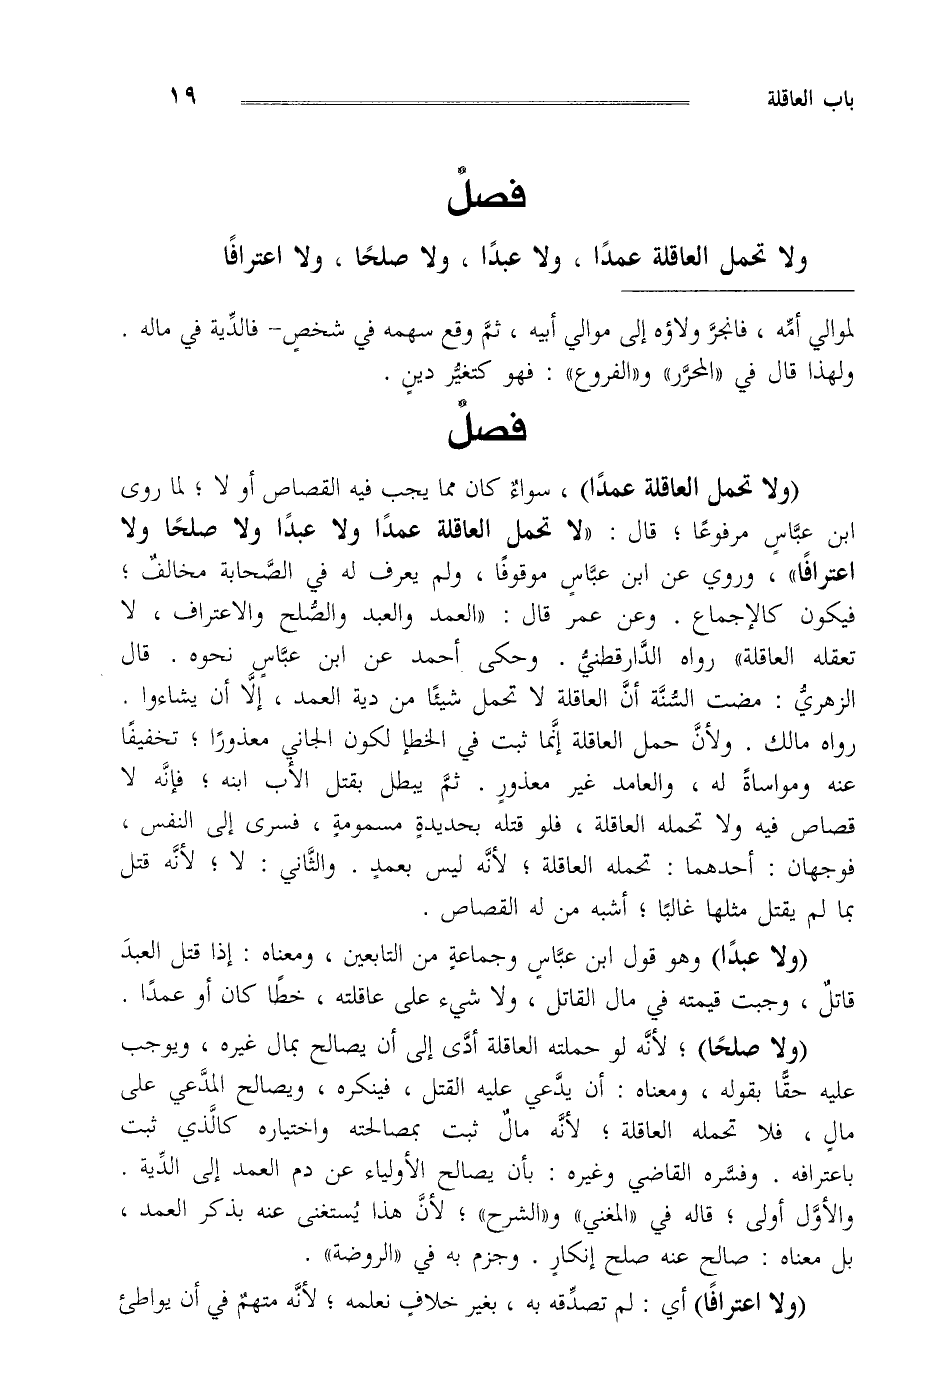 باب العاقلة ١٩
فصلٌ
ولا تحمل العاقلة عمدًا ، ولا عبدًا ، ولا صلحًا ، ولا اعترافًا
لموالي أمِّه ، فانجرَّ ولاؤه إلى موالي أبيه ، ثمَّ وقع سهمه في شخصٍ- فالدِّية في ماله .
ولهذا قال في «المحرَّر» و«الفروع» : فهو كتغيُّر دينٍ .
فصلٌ
(ولا تحمل العاقلة عمدًا) ، سواءٌ كان مما يجب فيه القصاص أو لا ؛ لما روى
ابن عبَّاسٍ مرفوعًا ؛ قال : «لا تحمل العاقلة عمدًا ولا عبدًا ولا صلحًا ولا
اعترافًا» ، وروي عن ابن عبَّاسٍ موقوفًا ، ولم يعرف له في الصَّحابة مخالفٌ ؛
فيكون كالإجماع . وعن عمر قال : «العمد والعبد والصُّلح والاعتراف ، لا
تعقله العاقلة» رواه الدَّارقطنيُّ . وحكى أحمد عن ابن عبَّاسٍ نحوه . قال
الزهريُّ : مضت السُّنَّة أنَّ العاقلة لا تحمل شيئًا من دية العمد ، إلَّا أن يشاءوا .
رواه مالك . ولأنَّ حمل العاقلة إنَّما ثبت في الخطإ لكون الجاني معذورًا ؛ تخفيفًا
عنه ومواساةً له ، والعامد غير معذورٍ . ثمَّ يبطل بقتل الأب ابنه ؛ فإنَّه لا
قصاص فيه ولا تحمله العاقلة ، فلو قتله بحديدةٍ مسمومةٍ ، فسرى إلى النفس ،
فوجهان : أحدهما : تحمله العاقلة ؛ لأنَّه ليس بعمدٍ . والثَّاني : لا ؛ لأنَّه قتل
بما لم يقتل مثلها غالبًا ؛ أشبه من له القصاص .
(ولا عبدًا) وهو قول ابن عبَّاسٍ وجماعةٍ من التابعين ، ومعناه : إذا قتل العبدَ
قاتلٌ ، وجبت قيمته في مال القاتل ، ولا شيء على عاقلته ، خطًا كان أو عمدًا .
(ولا صلحًا) ؛ لأنَّه لو حملته العاقلة أدَّى إلى أن يصالح بمال غيره ، ويوجب
عليه حقًّا بقوله ، ومعناه : أن يدَّعي عليه القتل ، فينكره ، ويصالح المدَّعي على
مالٍ ، فلا تحمله العاقلة ؛ لأنَّه مالٌ ثبت بمصالحته واختياره كالَّذي ثبت
باعترافه . وفسَّره القاضي وغيره : بأن يصالح الأولياء عن دم العمد إلى الدِّية .
والأوَّل أولى ؛ قاله في «المغني» و«الشرح» ؛ لأنَّ هذا يُستغنى عنه بذكر العمد ،
بل معناه : صالح عنه صلح إنكارٍ . وجزم به في «الروضة» .
(ولا اعترافًا) أي : لم تصدِّقه به ، بغير خلافٍ نعلمه ؛ لأنَّه متهمٌ في أن يواطئ